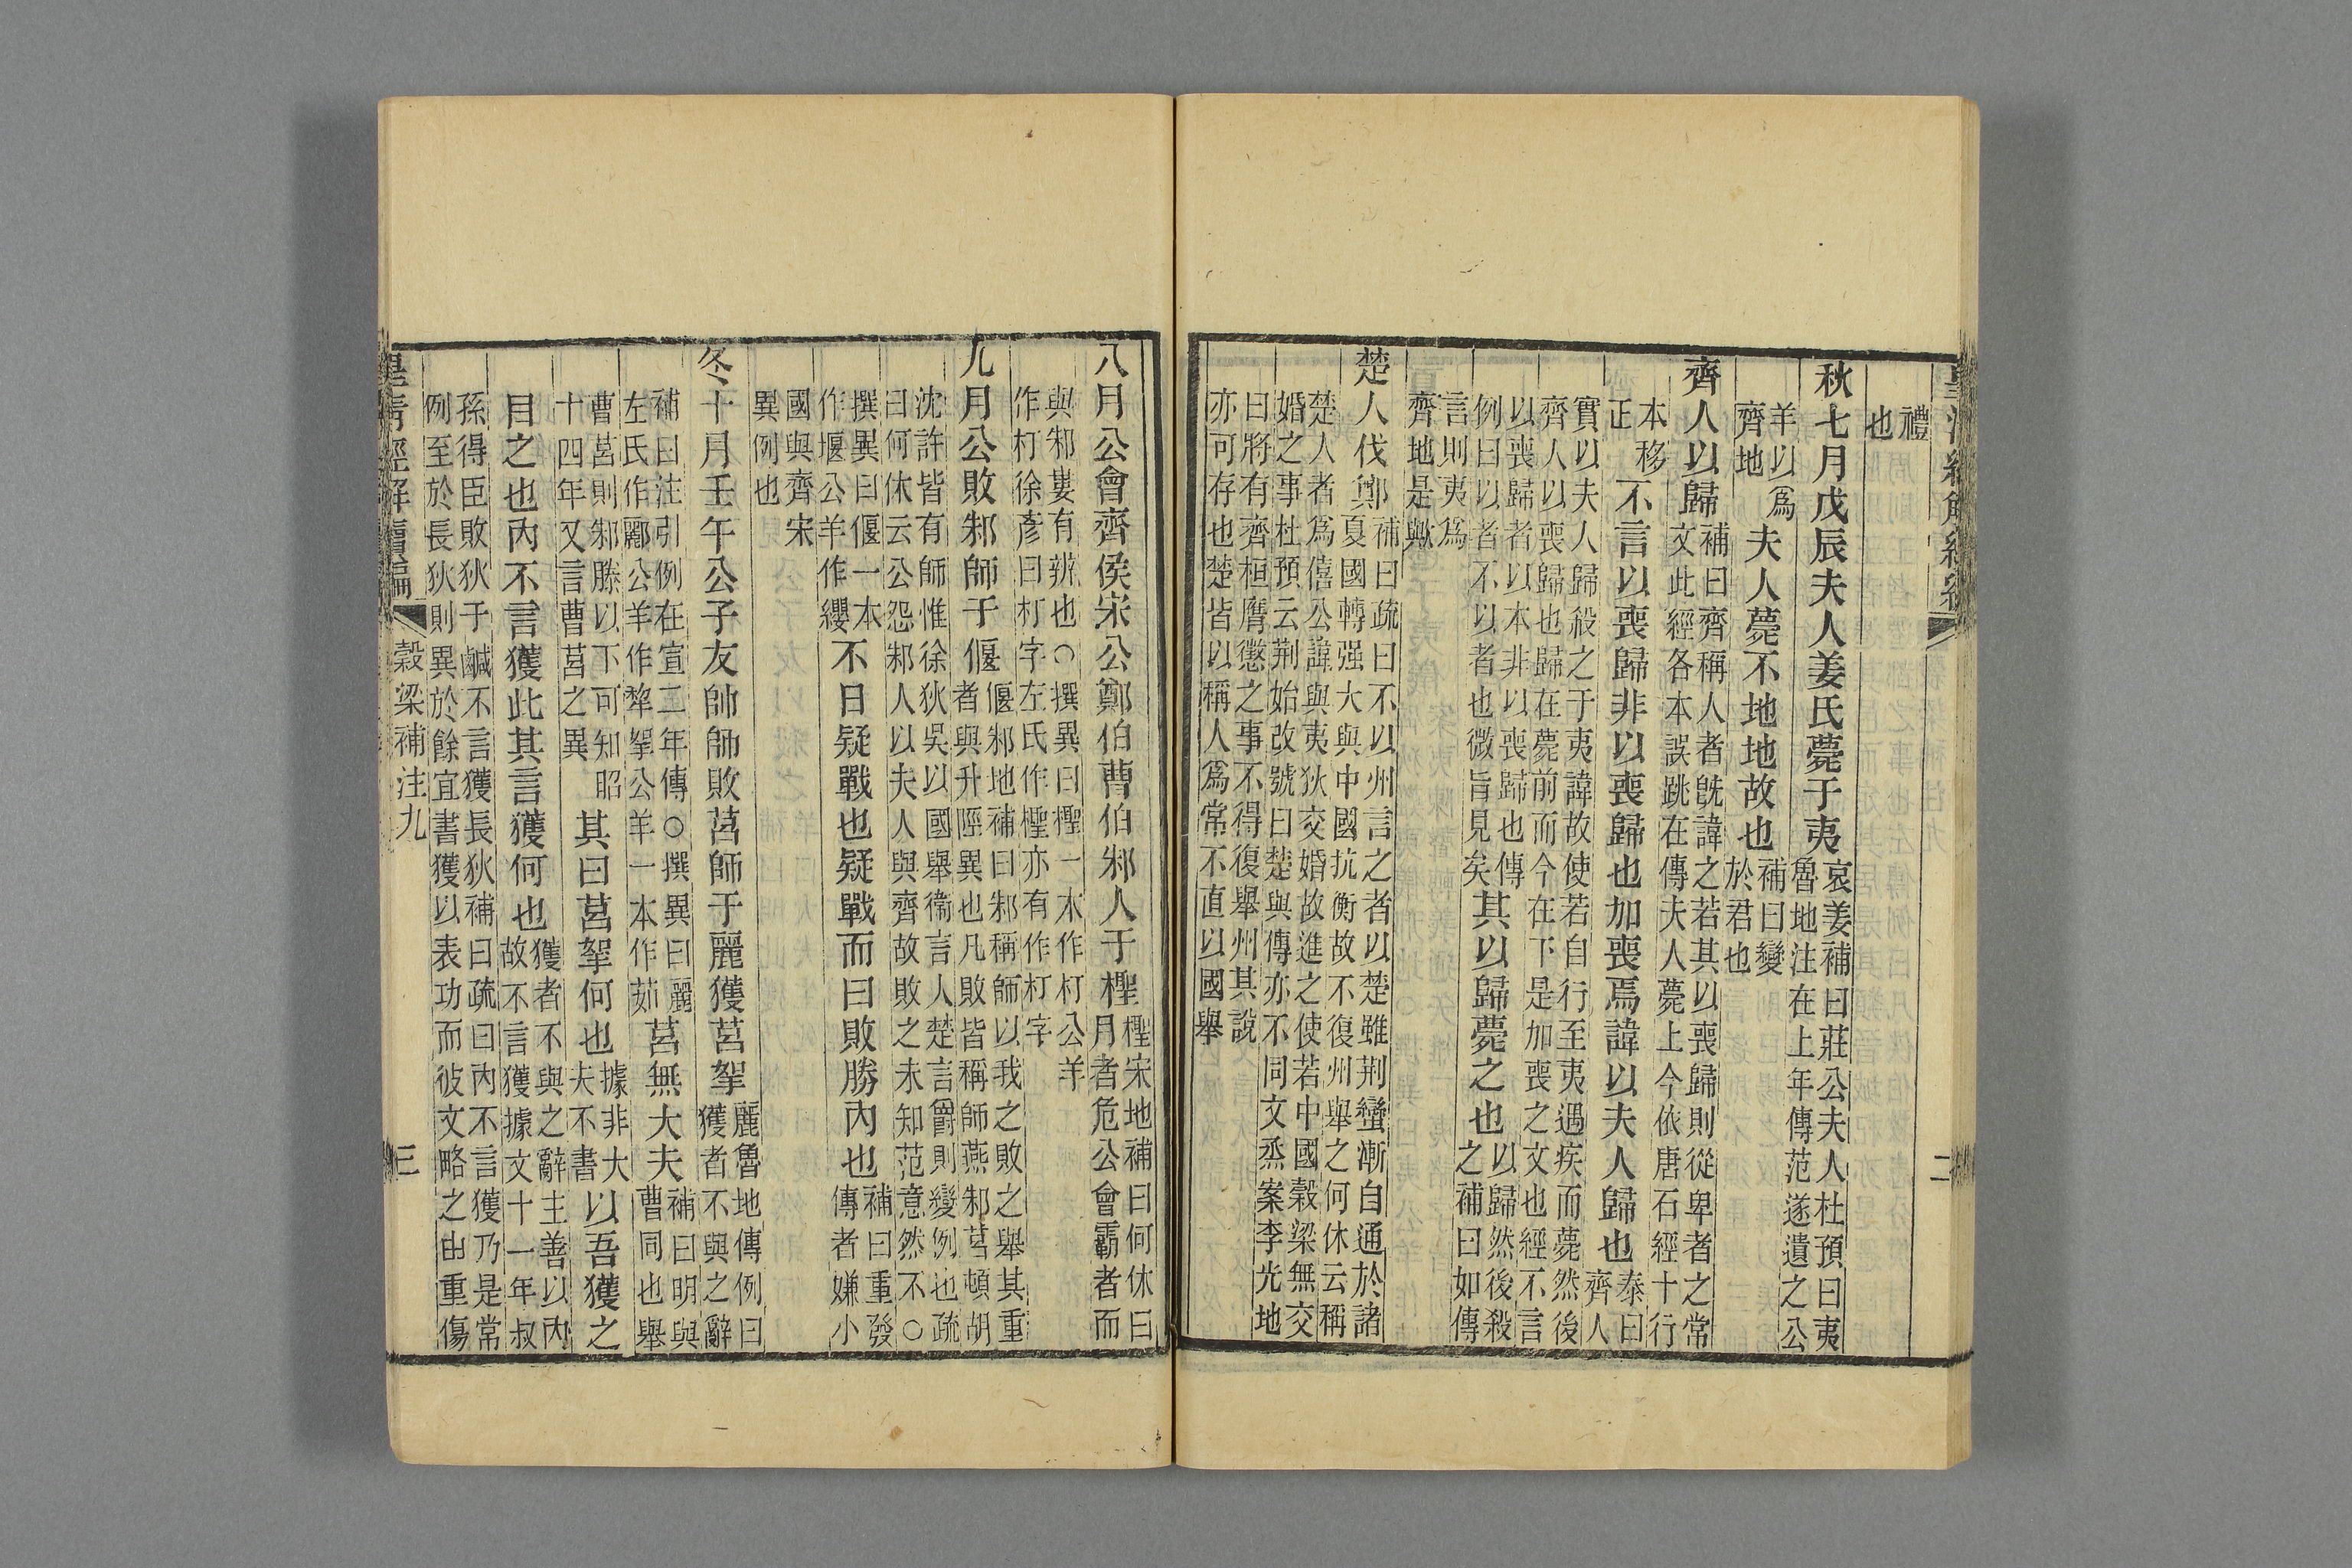 皇清經解續編
二
禮
也
秋七月戊辰夫人姜氏薨于夷哀姜補曰莊公夫人杜預曰夷
魯地注在上年傳范遂遺之公
羊以爲
齊地
夫人薨不地地故也補曰變
於君也
齊人以歸補曰齊稱人者旣諱之若其以喪歸則從卑者之常
文此經各本誤跳在傳夫人薨上今依唐石經十行
本移
正
不言以喪歸非以喪歸也加喪焉諱以夫人歸也泰曰
齊人
實以夫人歸殺之于夷諱故使若自行至夷遇疾而薨然後
齊人以喪歸也歸在薨前而今在下是加喪之文也經不言
以喪歸者以本非以喪歸也傳
例曰以者不以者也微旨見矣
其以歸薨之也以歸然後殺
之補曰如傳
言則夷爲
齊地是歟
楚人伐鄭補曰疏曰不以州言之者以楚雖荆蠻漸自通於諸
夏國轉强大與中國抗衡故不復州舉之何休云稱
楚人者爲僖公諱與夷狄交婚故進之使若中國榖梁無交
婚之事杜預云荆始改號曰楚與傳亦不同文烝案李光地
曰將有齊桓膺懲之事不得復舉州其說
亦可存也楚皆以稱人爲常不直以國舉
八月公會齊侯宋公鄭伯曹伯邾人于檉檉宋地補曰何休曰
月者危公會霸者而
與邾婁有辨也○撰異曰檉一本作朾公羊
作朾徐彥曰朾字左氏作檉亦有作朾字
九月公敗邾師于偃偃邾地補曰邾稱師以我之敗之舉其重
者與升陘異也凡敗皆稱師燕邾莒頓胡
沈許皆有師惟徐狄吳以國舉衞言人楚言罽則變例也疏
曰何休云公怨邾人以夫人與齊故敗之未知范意然不○
撰異曰偃一本
作堰公羊作纓
不日疑戰也疑戰而曰敗勝內也補曰重發
傳者嫌小
國與齊宋
異例也
冬十月壬午公子友帥師敗莒師于麗獲莒挐麗魯地傳例曰
獲者不與之辭
補曰注引例在宣二年傳○撰異曰麗
左氏作酈公羊作犂挐公羊一本作茹
莒無大夫補曰明與
曹同也舉
曹莒則邾滕以下可知昭
十四年又言曹莒之異
其曰莒挐何也據非大
夫不書
以吾獲之
目之也內不言獲此其言獲何也獲者不與之辭主善以內
故不言獲據文十一年叔
孫得臣敗狄于鹹不言獲長狄補曰疏曰內不言獲乃是常
例至於長狄則異於餘宜書獲以表功而彼文略之由重傷
皇淸經解續編
榖梁補注九
三